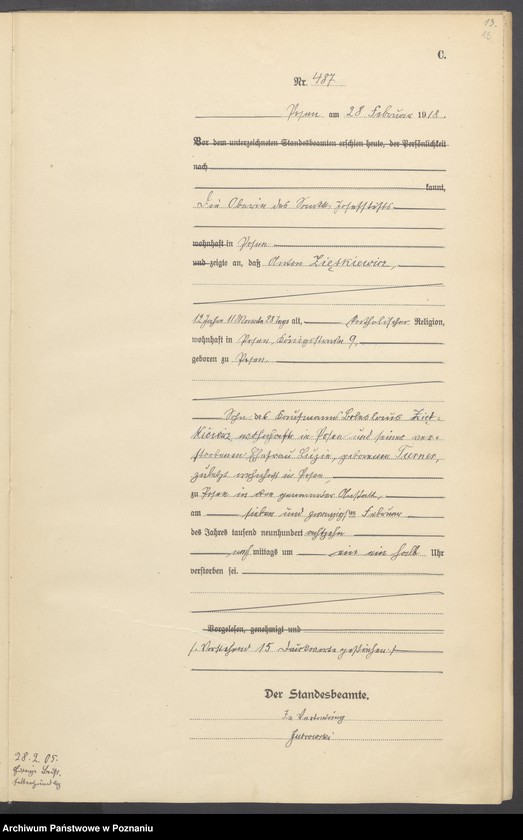 13.
C.
Nr. 487
Posen am 28 Februar 1918.
Vor dem unterzeichneten Standesbeamten erschien heute, der Persönlichkeit
nach
kannt,
Die Oberin des Josefstifts
wohnhaft in Posen
und zeigte an, daß Anton Ziętkiewicz,
12 Jahre 11 Monate 28 Tage alt, katholischer Religion,
wohnhaft in Posen, Königsstraße 9,
geboren zu Posen
Sohn des Kaufmanns Boleslaus Zięt-
kiewicz, wohnhaft in Posen und seiner ver-
storbenen Ehefrau Luzie, geborenen Turner,
zuletzt wohnhaft in Posen,
zu Posen in der genannten Anstalt,
am sieben und zwanzigsten Februar
des Jahres tausend neunhundert achtzehn
nachmittags um ein ein halb Uhr
verstorben sei.
Vorgelesen, genehmigt und
/. Vorstehend 15 Druckworte gestrichen ./.
Der Standesbeamte.
In Vertretung
28.2.05.
Archiwum Państwowe w Poznaniu